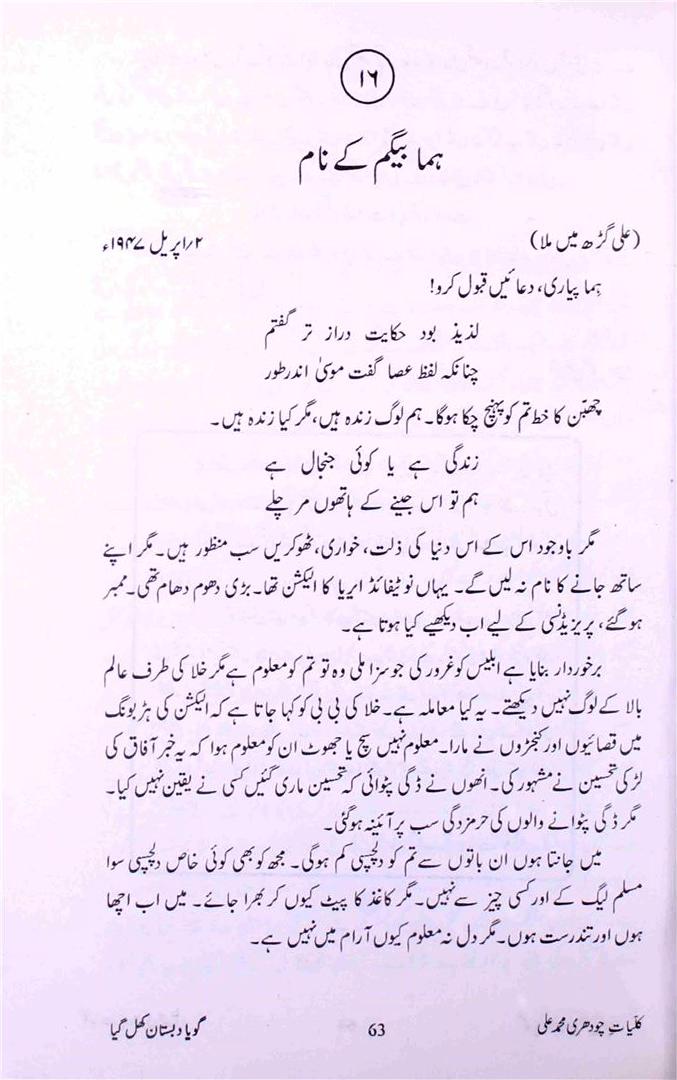 ۱۶
ہما بیگم کے نام
(علی گڑھ میں ملا) ۲؍اپریل ۱۹۴۷ء
ہما پیاری، دعائیں قبول کرو!
لذیذ بود حکایت دراز تر گفتم
چنانکہ لفظ عصا گفت موسیٰ اندر طور
چھبّن کا خط تم کو پہنچ چکا ہوگا۔ ہم لوگ زندہ ہیں، مگر کیا زندہ ہیں۔
زندگی ہے یا کوئی جنجال ہے
ہم تو اس جینے کے ہاتھوں مر چلے
مگر باوجود اس کے اس دنیا کی ذلت، خواری، ٹھوکریں سب منظور ہیں۔ مگر اپنے
ساتھ جانے کا نام نہ لیں گے۔ یہاں نوٹیفائڈ ایریا کا الیکشن تھا۔ بڑی دھوم دھام تھی۔ ممبر
ہو گئے، پریزیڈنسی کے لیے اب دیکھیے کیا ہوتا ہے۔
برخوردار بنایا ہے ابلیس کو غرور کی جو سزا ملی وہ تو تم کو معلوم ہے مگر خلا کی طرف عالم
بالا کے لوگ نہیں دیکھتے۔ یہ کیا معاملہ ہے۔ خلا کی بی بی کو کہا جاتا ہے کہ الیکشن کی ہڑبونگ
میں قصائیوں اور کنجڑوں نے مارا۔ معلوم نہیں سچ یا جھوٹ ان کو معلوم ہوا کہ یہ خبر آفاق کی
لڑکی تحسین نے مشہور کی۔ انھوں نے ڈگی پٹوائی کہ تحسین ماری گئیں کسی نے یقین نہیں کیا۔
مگر ڈگی پٹوانے والوں کی حرمزدگی سب پر آئینہ ہوگئی۔
میں جانتا ہوں ان باتوں سے تم کو دلچسپی کم ہوگی۔ مجھ کو بھی کوئی خاص دلچسپی سوا
مسلم لیگ کے اور کسی چیز سے نہیں۔ مگر کاغذ کا پیٹ کیوں کر بھرا جائے۔ میں اب اچھا
ہوں اور تندرست ہوں۔ مگر دل نہ معلوم کیوں آرام میں نہیں ہے۔
کلّیاتِ چودھری محمد علی 63 گویا دبستاں کھل گیا